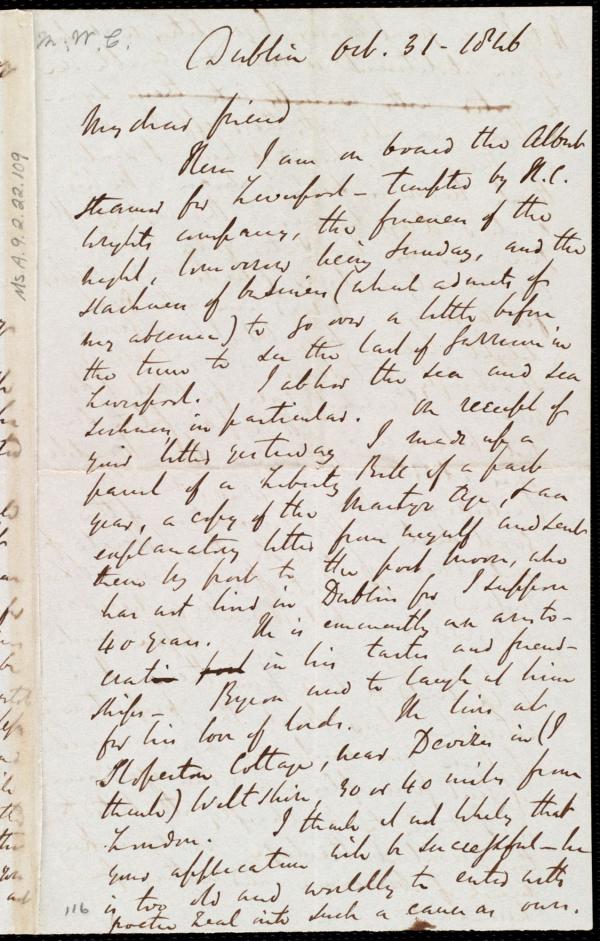 M. W. C.
Dublin Oct. 31 - 1846
My dear friend
Here I am on board the Albert
steamer for Liverpool - tempted by R. C.
Wright's company, the fineness of the
night, tomorrow being Sunday, and the
slackness of business (which admits of
my absence) to go over a little before
the time to see the last of Garrison in
Liverpool. I abhor the sea and sea
sickness in particular. On receipt of
your letter yesterday I made up a
parcel of a Liberty Bell of a past
year, a copy of the Martyr Age, & an
explanatory letter from myself and sent
them by post to the poet Moore, who
has not lived in Dublin for I suppose
40 years. He is eminently an aristo-
crat in his tastes and friend-
ships - Byron used to laugh at him
for his love of lords. He lives at
Sloperton Cottage, near Devizes in (I
think) Wiltshire, 30 or 40 miles from
London. I think it not likely that
your application will be successful - he
is too old and worldly to enter with
poetic zeal into such a cause as ours.
Ms. A. 9. 2. 22. 109
116